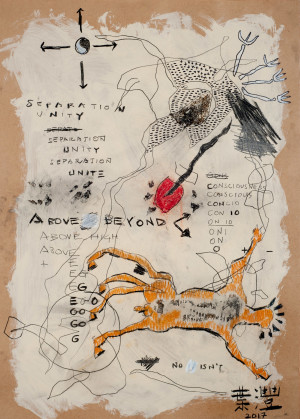 SEPARATION
UNITY
SEPARATION
UNITY
SEPARATION
UNITE
ABOVE & BEYOND
ABOVE HIGH
ABOVE E
+ E
E
G E
EGO O
EGO G
EGO O
G
CONS
CONSCIOUSNESS
CONSCIOUS
CONCIO
CON IO
ON IO
ONI
ON
O + -
NO IS ISN'T
葉澧
2017